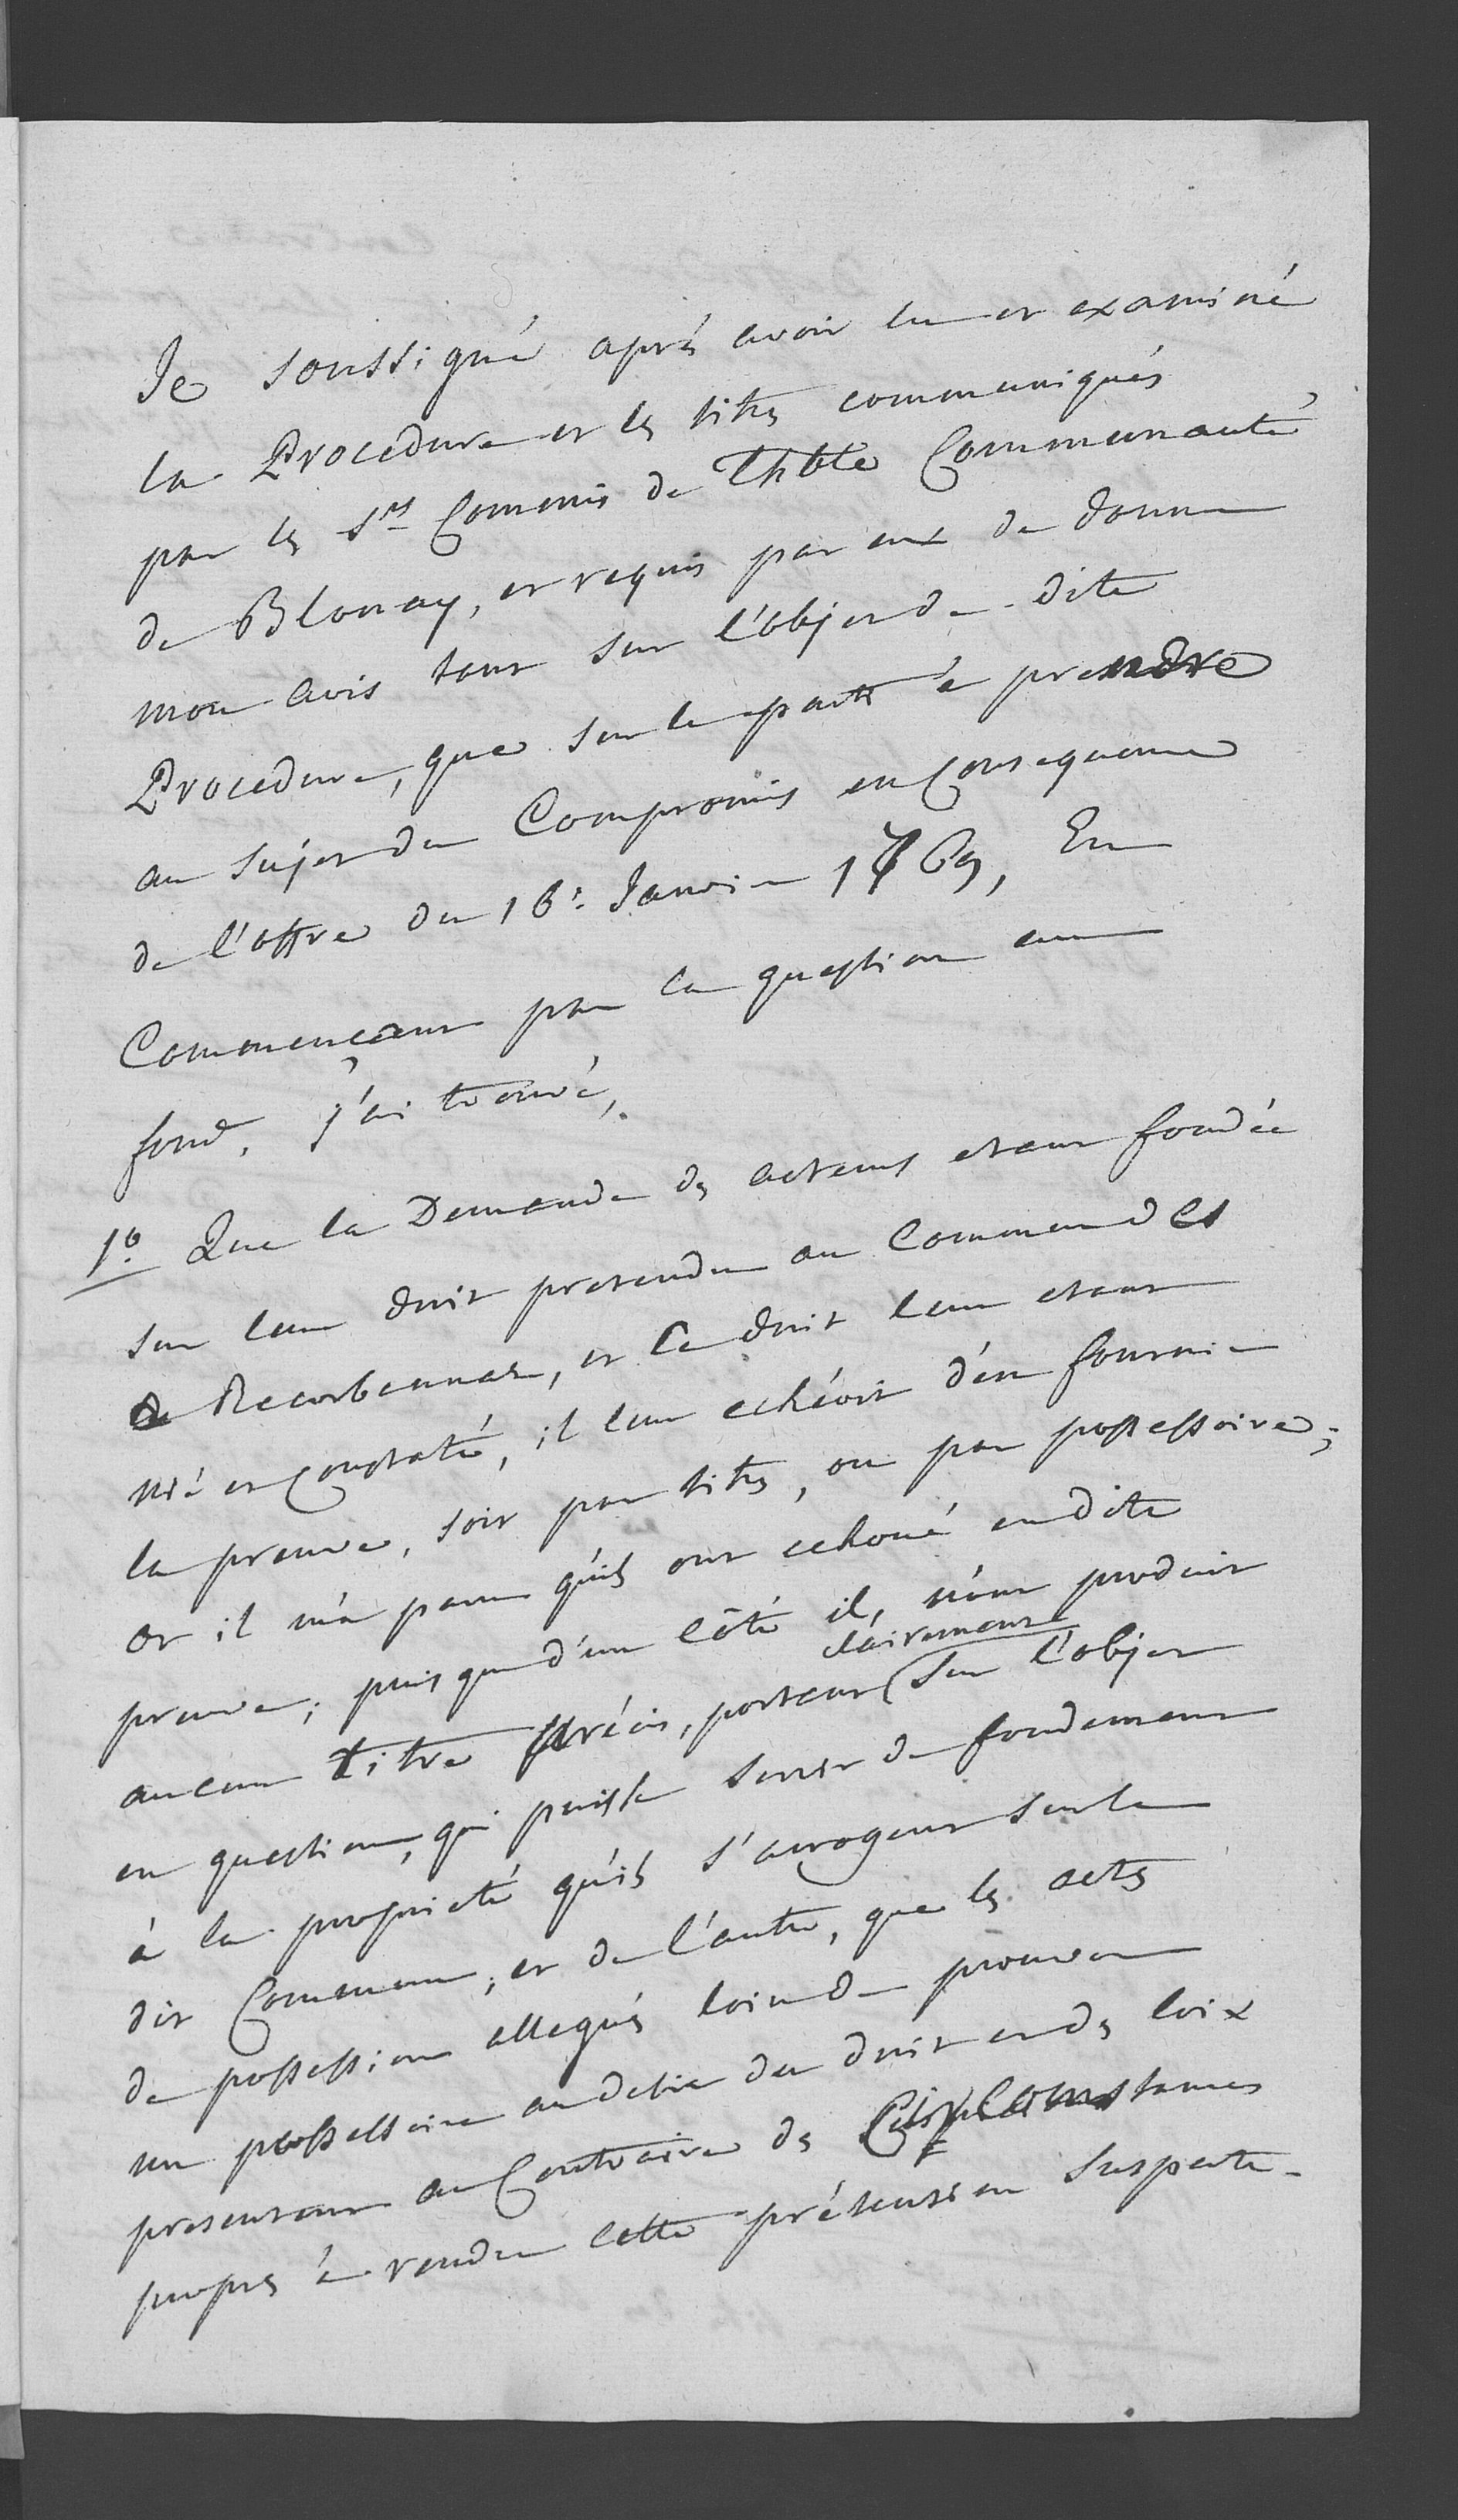 Je soussigné après avoir lu et examiné
la Procedure et les titres communiqués
par les Srs Commis de l'hble Communauté
de Blonay, et requis par eux de donner
mon avis tant sur l'objet de dite
Procedure, que sur le parti à prendre
au sujet du Compromis en Consequence
de l'offre du 16e Janvier 1769, En
Commençant par la question au
fond, j'ai trouvé,
1o Que la Demande des acteurs etant fondée
sur leur droit pretendu au Commun des
de Recorbennaz, et Ce droit leur etant
nié et Constaté, il leur echéoit d'en fournir
la preuve, soit par titres, ou par possessoire;
or il m'a paru qu'ils ont echoué en dite
preuve; puis que d'un côté ils n'ont produit
clairement
aucun Titre précis, portant sur l'objet
en question, qui puisse servir de fondement
à la proprieté qu'ils s'arrogent sur le
dit Commun; et de l'autre, que les actes
de possession allegués loin de prouver
un possessoire au desir du droit et des loix
presentent au Contraire des Circonstances
propres à rendre cette prétention suspecte.